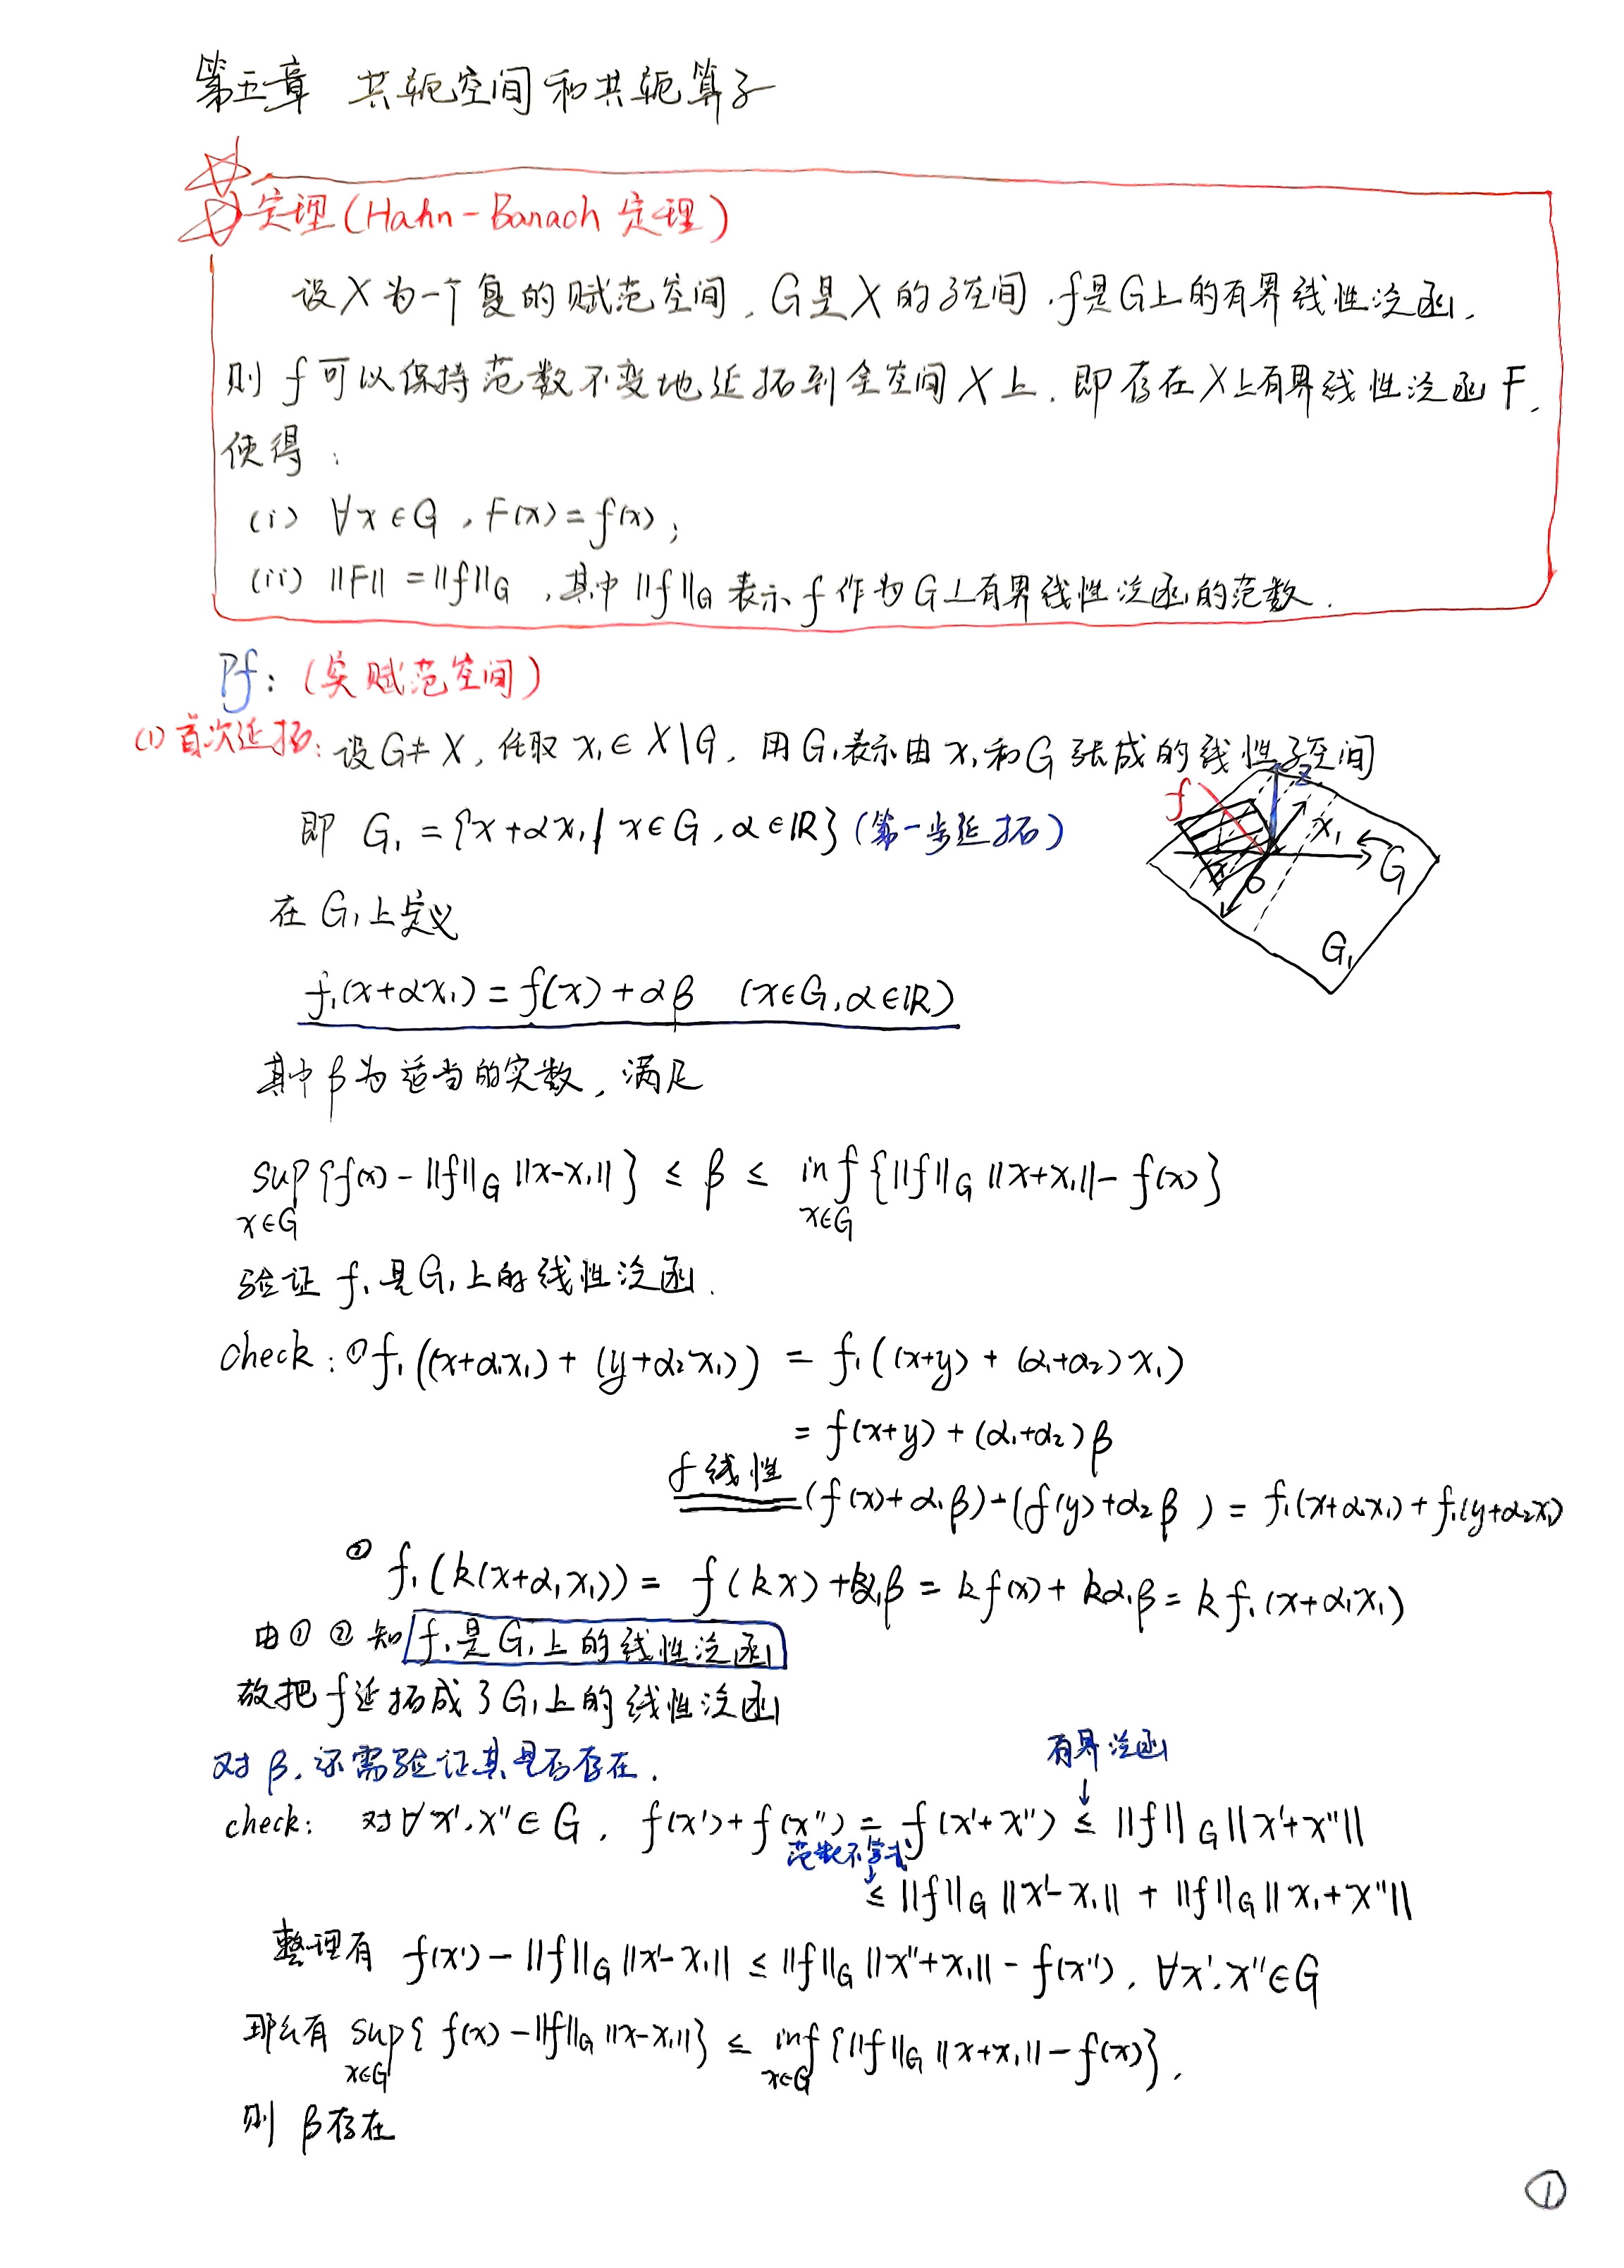 第五章 共轭空间和共轭算子
定理(Hahn-Banach 定理)
设X为一个复的赋范空间, G是X的子空间, f是G上的有界线性泛函,
则 f 可以保持范数不变地延拓到全空间X上, 即存在X上有界线性泛函 F,
使得:
(i) ∀x∈G, F(x)=f(x);
(ii) ||F||=||f||_G, 其中||f||_G表示f作为G上有界线性泛函的范数.
Pf: (实赋范空间)
(1) 首次延拓: 设G≠X, 任取 x₁∈X\G, 用G₁表示由x₁和G张成的线性子空间
即 G₁={x+αx₁ | x∈G, α∈ℝ} (第一步延拓)
f
x₁
G
0
G₁
在G₁上定义
f₁(x+αx₁)=f(x)+αβ (x∈G, α∈ℝ)
其中β为适当的实数, 满足
sup_{x∈G}{f(x)-||f||_G ||x-x₁||} ≤ β ≤ inf_{x∈G}{||f||_G ||x+x₁||-f(x)}
验证 f₁是G₁上的线性泛函.
check: ① f₁((x+α₁x₁)+(y+α₂x₁)) = f₁((x+y)+(α₁+α₂)x₁)
= f(x+y)+(α₁+α₂)β
f线性
(f(x)+α₁β)+(f(y)+α₂β) = f₁(x+α₁x₁)+f₁(y+α₂x₁)
② f₁(k(x+α₁x₁)) = f(kx)+kα₁β = kf(x)+kα₁β = kf₁(x+α₁x₁)
由①②知 f₁是G₁上的线性泛函
故把f延拓成了G₁上的线性泛函
对β, 还需验证其是否存在.
有界泛函
↓
check: 对∀x′,x″∈G, f(x′)+f(x″)=f(x′+x″) ≤ ||f||_G ||x′+x″||
范数不等式
↓
≤ ||f||_G ||x′-x₁|| + ||f||_G ||x₁+x″||
整理有 f(x′)-||f||_G ||x′-x₁|| ≤ ||f||_G ||x″+x₁||-f(x″), ∀x′,x″∈G
那么有 sup_{x∈G}{f(x)-||f||_G ||x-x₁||} ≤ inf_{x∈G}{||f||_G ||x+x₁||-f(x)},
则 β存在
①